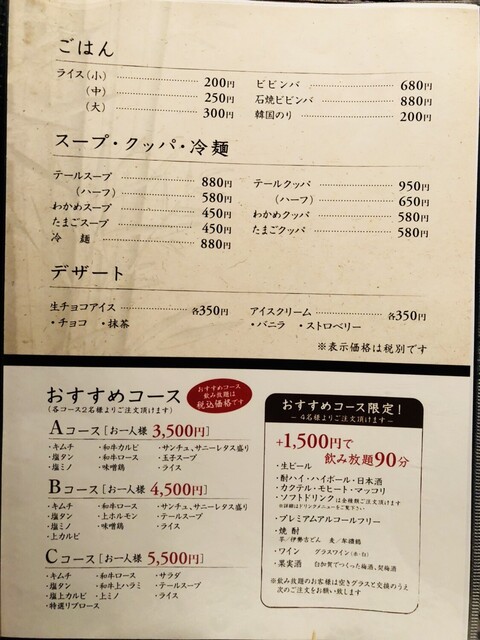 ごはん
ライス(小) 200円
(中) 250円
(大) 300円
ビビンバ 680円
石焼ビビンバ 880円
韓国のり 200円
スープ・クッパ・冷麺
テールスープ 880円
(ハーフ) 580円
わかめスープ 450円
たまごスープ 450円
冷麺 880円
テールクッパ 950円
(ハーフ) 650円
わかめクッパ 580円
たまごクッパ 580円
デザート
生チョコアイス 各350円
・チョコ ・抹茶
アイスクリーム 各350円
・バニラ ・ストロベリー
※表示価格は税別です
おすすめコース
(各コース2名様よりご注文頂けます)
おすすめコース
飲み放題は
税込価格です
Aコース[お一人様 3,500円]
・キムチ ・和牛カルビ ・サンチュ、サニーレタス盛り
・塩タン ・和牛ロース ・玉子スープ
・塩ミノ ・味噌鶏 ・ライス
Bコース[お一人様 4,500円]
・キムチ ・和牛ロース ・サンチュ、サニーレタス盛り
・塩タン ・上ホルモン ・テールスープ
・塩ミノ ・味噌鶏 ・ライス
・上カルビ
Cコース[お一人様 5,500円]
・キムチ ・和牛ロース ・サラダ
・塩タン ・和牛上ハラミ ・テールスープ
・塩上カルビ ・上ミノ ・ライス
・特選リブロース
おすすめコース限定!
― 4名様よりご注文頂けます ―
+1,500円で
飲み放題90分
・生ビール
・酎ハイ・ハイボール・日本酒
・カクテル・モヒート・マッコリ
・ソフトドリンクは全種類ご注文頂けます
※詳細はドリンクメニューをご覧下さい
・プレミアムアルコールフリー
・焼酎
芋/伊勢吉どん 麦/
・ワイン グラスワイン(赤・白)
・果実酒 白加賀でつくった梅酒、
※飲み放題のお客様は空きグラスと交換のうえ
次のご注文をお願い致します